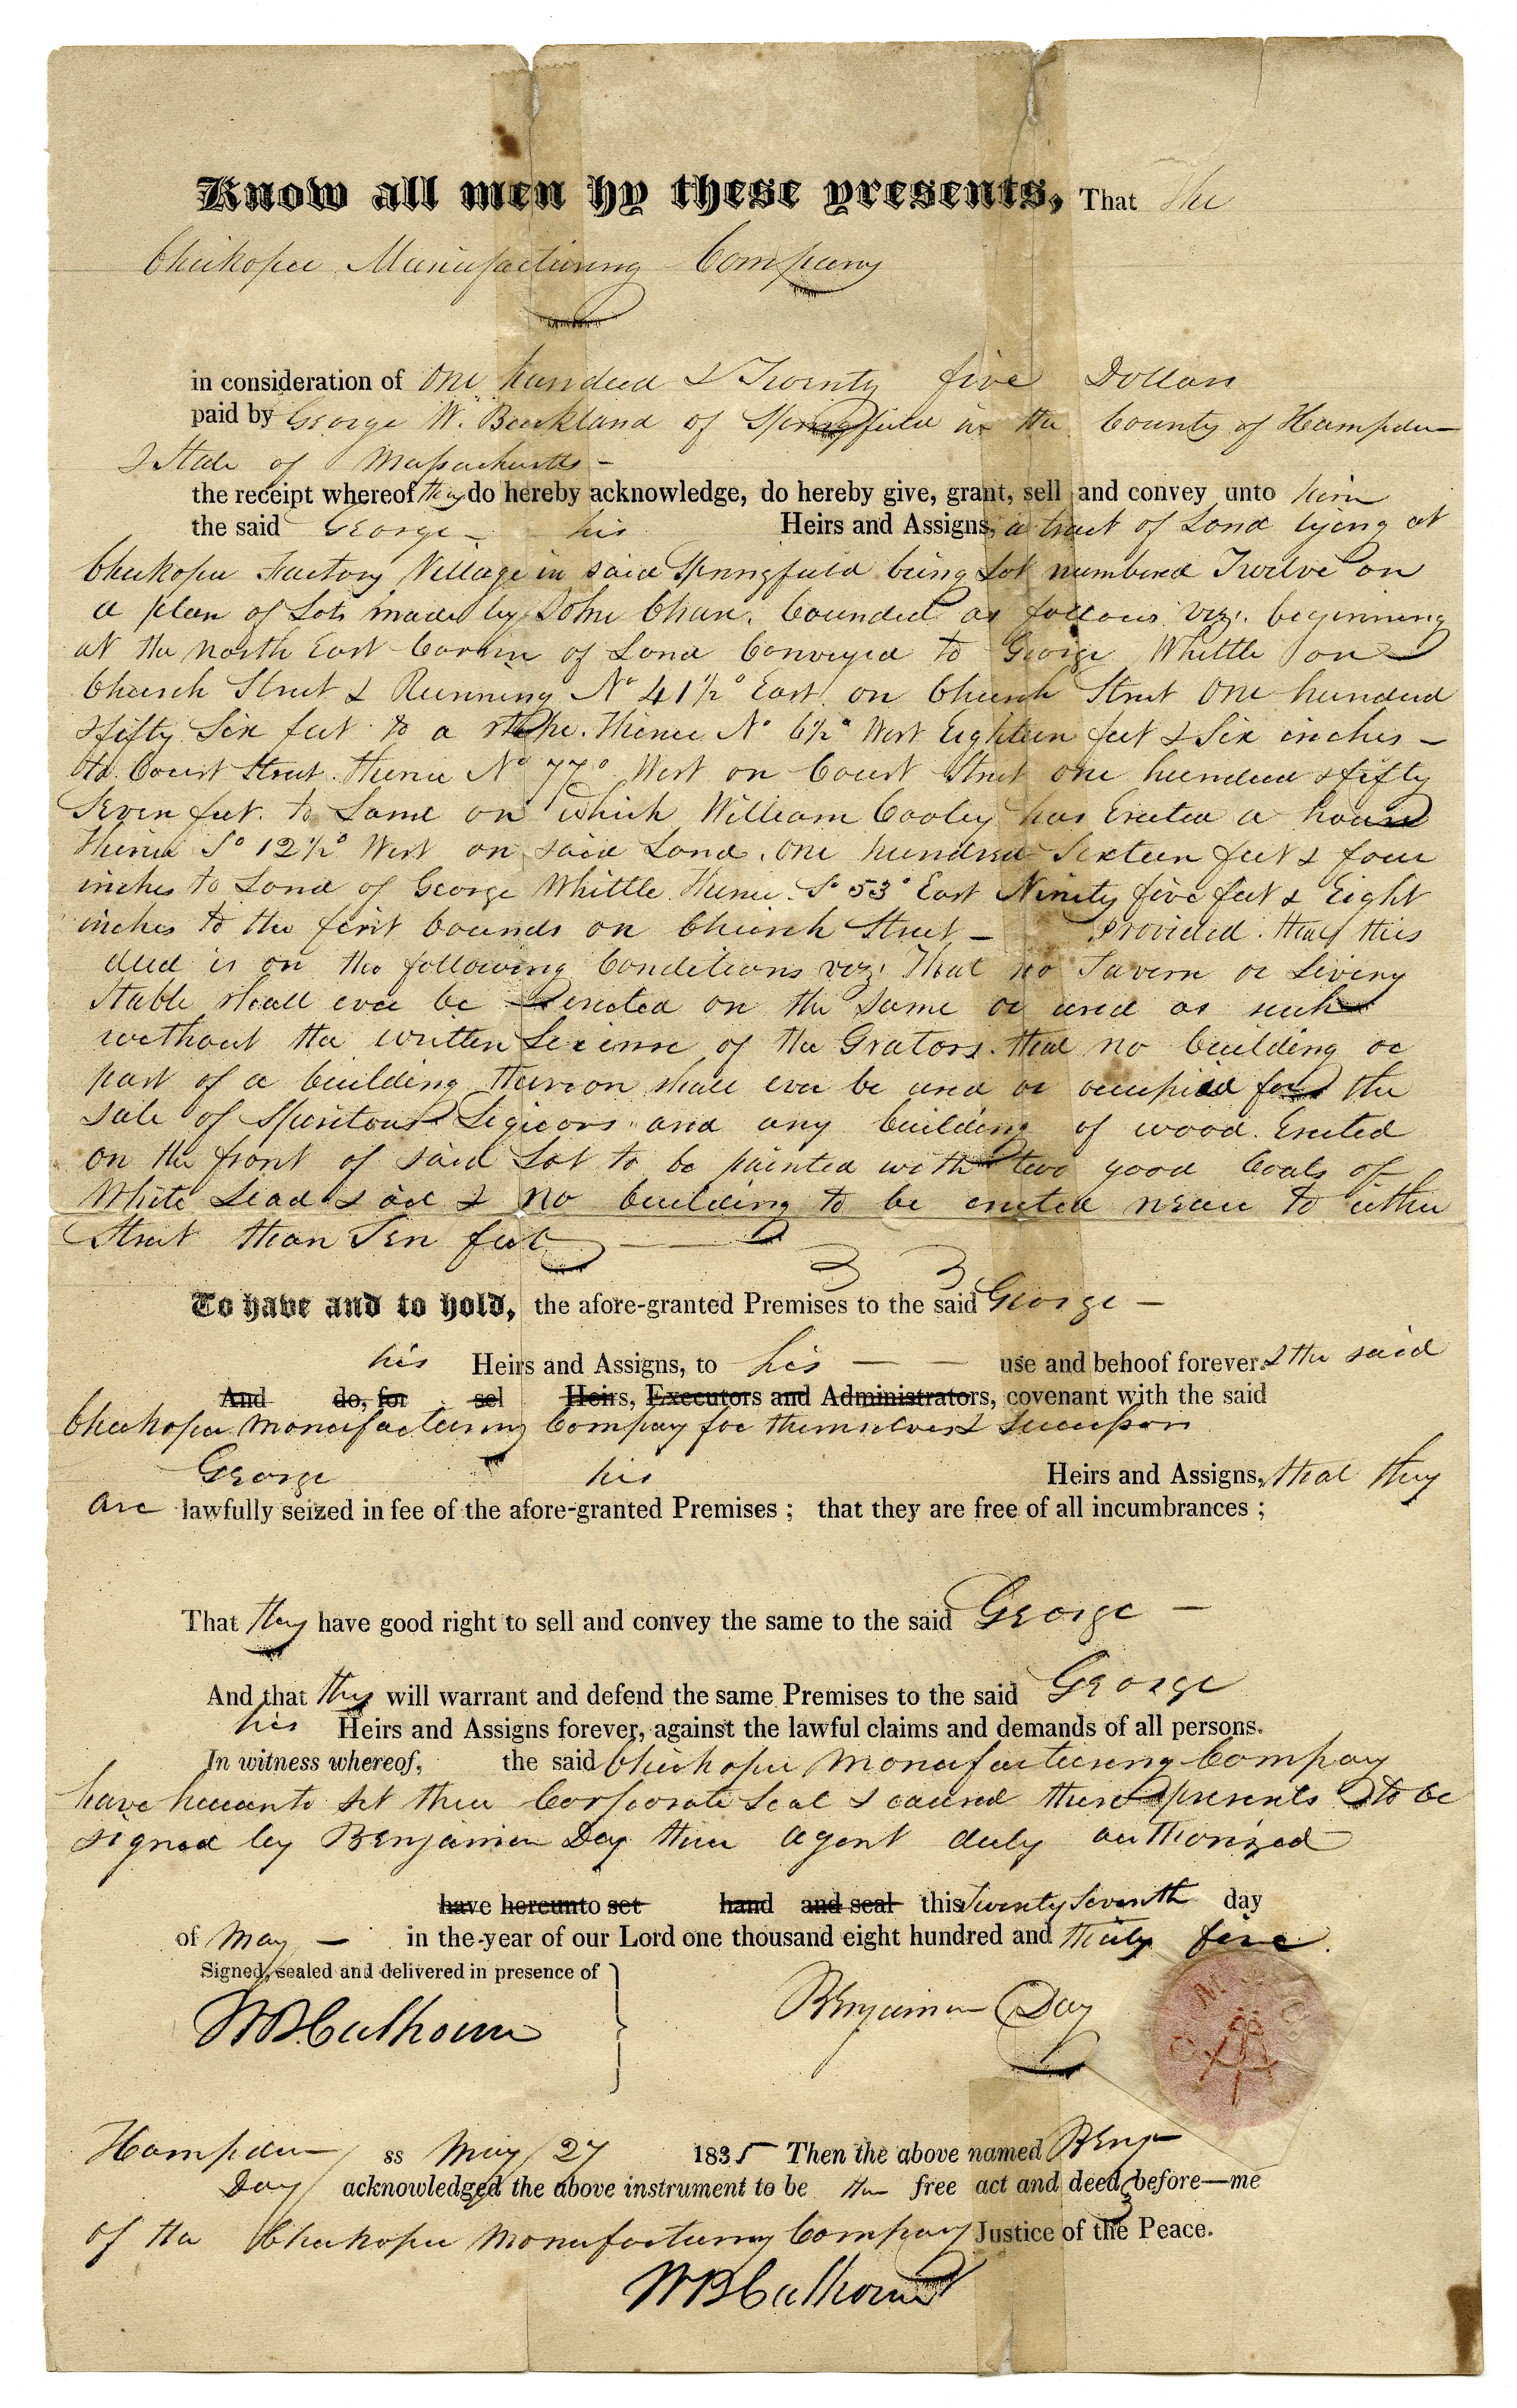 Know all men by these presents, That The
Chickopee Manufacturing Company
in consideration of One hundred & Twenty five Dollars
paid by George W. Buckland of Springfield in the County of Hampden
& State of Massachusetts –
the receipt whereof they do hereby acknowledge, do hereby give, grant, sell and convey unto him
the said George – his Heirs and Assigns, a tract of Land lying at
Chickopee Factory Village in said Springfield being Lot numbered Twelve on
a plan of Lots made by John Chase. bounded as follows viz: beginning
at the north East Corner of Land Conveyed to George Whittle on
Church Street & Running N° 41½° East on Church Street One hundred
& fifty Six feet to a stake. Thence N° 6½° West Eighteen feet & Six inches –
to Court Street. Thence N° 77° West on Court Street one hundred & fifty
Seven feet. to Land on which William Cooley has Erected a house
Thence S° 12½° West on said Land. One hundred Sixteen feet & four
inches to Land of George Whittle Thence S° 53° East Ninety five feet & Eight
inches to the first bounds on Church Street – Provided. that this
deed is on the following Conditions viz: That no Tavern or Livery
Stable shall ever be erected on the same or used as such
without the written License of the Grators. that no building or
part of a building thereon shall ever be used or occupied for the
sale of Spiritous Liquors and any building of wood. Erected
on the front of said Lot to be painted with two good Coats of
White Lead & oil & no building to be erected near to either
Street than Ten feet
To have and to hold, the afore-granted Premises to the said George –
his Heirs and Assigns, to his – – use and behoof forever. & the said
And do, for sel Heirs, Executors and Administrators, covenant with the said
Chickopee Manufacturing Company for themselves & Successors
George his Heirs and Assigns, that they
are lawfully seized in fee of the afore-granted Premises ; that they are free of all incumbrances ;
That they have good right to sell and convey the same to the said George –
And that they will warrant and defend the same Premises to the said George
his Heirs and Assigns forever, against the lawful claims and demands of all persons.
In witness whereof, the said Chickopee Manufacturing Company
have hereunto set their Corporate Seal & caused these presents to be
signed by Benjamin Day their agent duly authorized
have hereunto set hand and seal this Twenty Seventh day
of May – in the year of our Lord one thousand eight hundred and thirty five.
Signed, sealed and delivered in presence of
WB Calhoun Benjamin Day
C M C O
Hampden ss May 27 1835 Then the above named Benj
Day acknowledged the above instrument to be the free act and deed before—me
of the Chickopee Manufacturing Company Justice of the Peace.
WB Calhoun